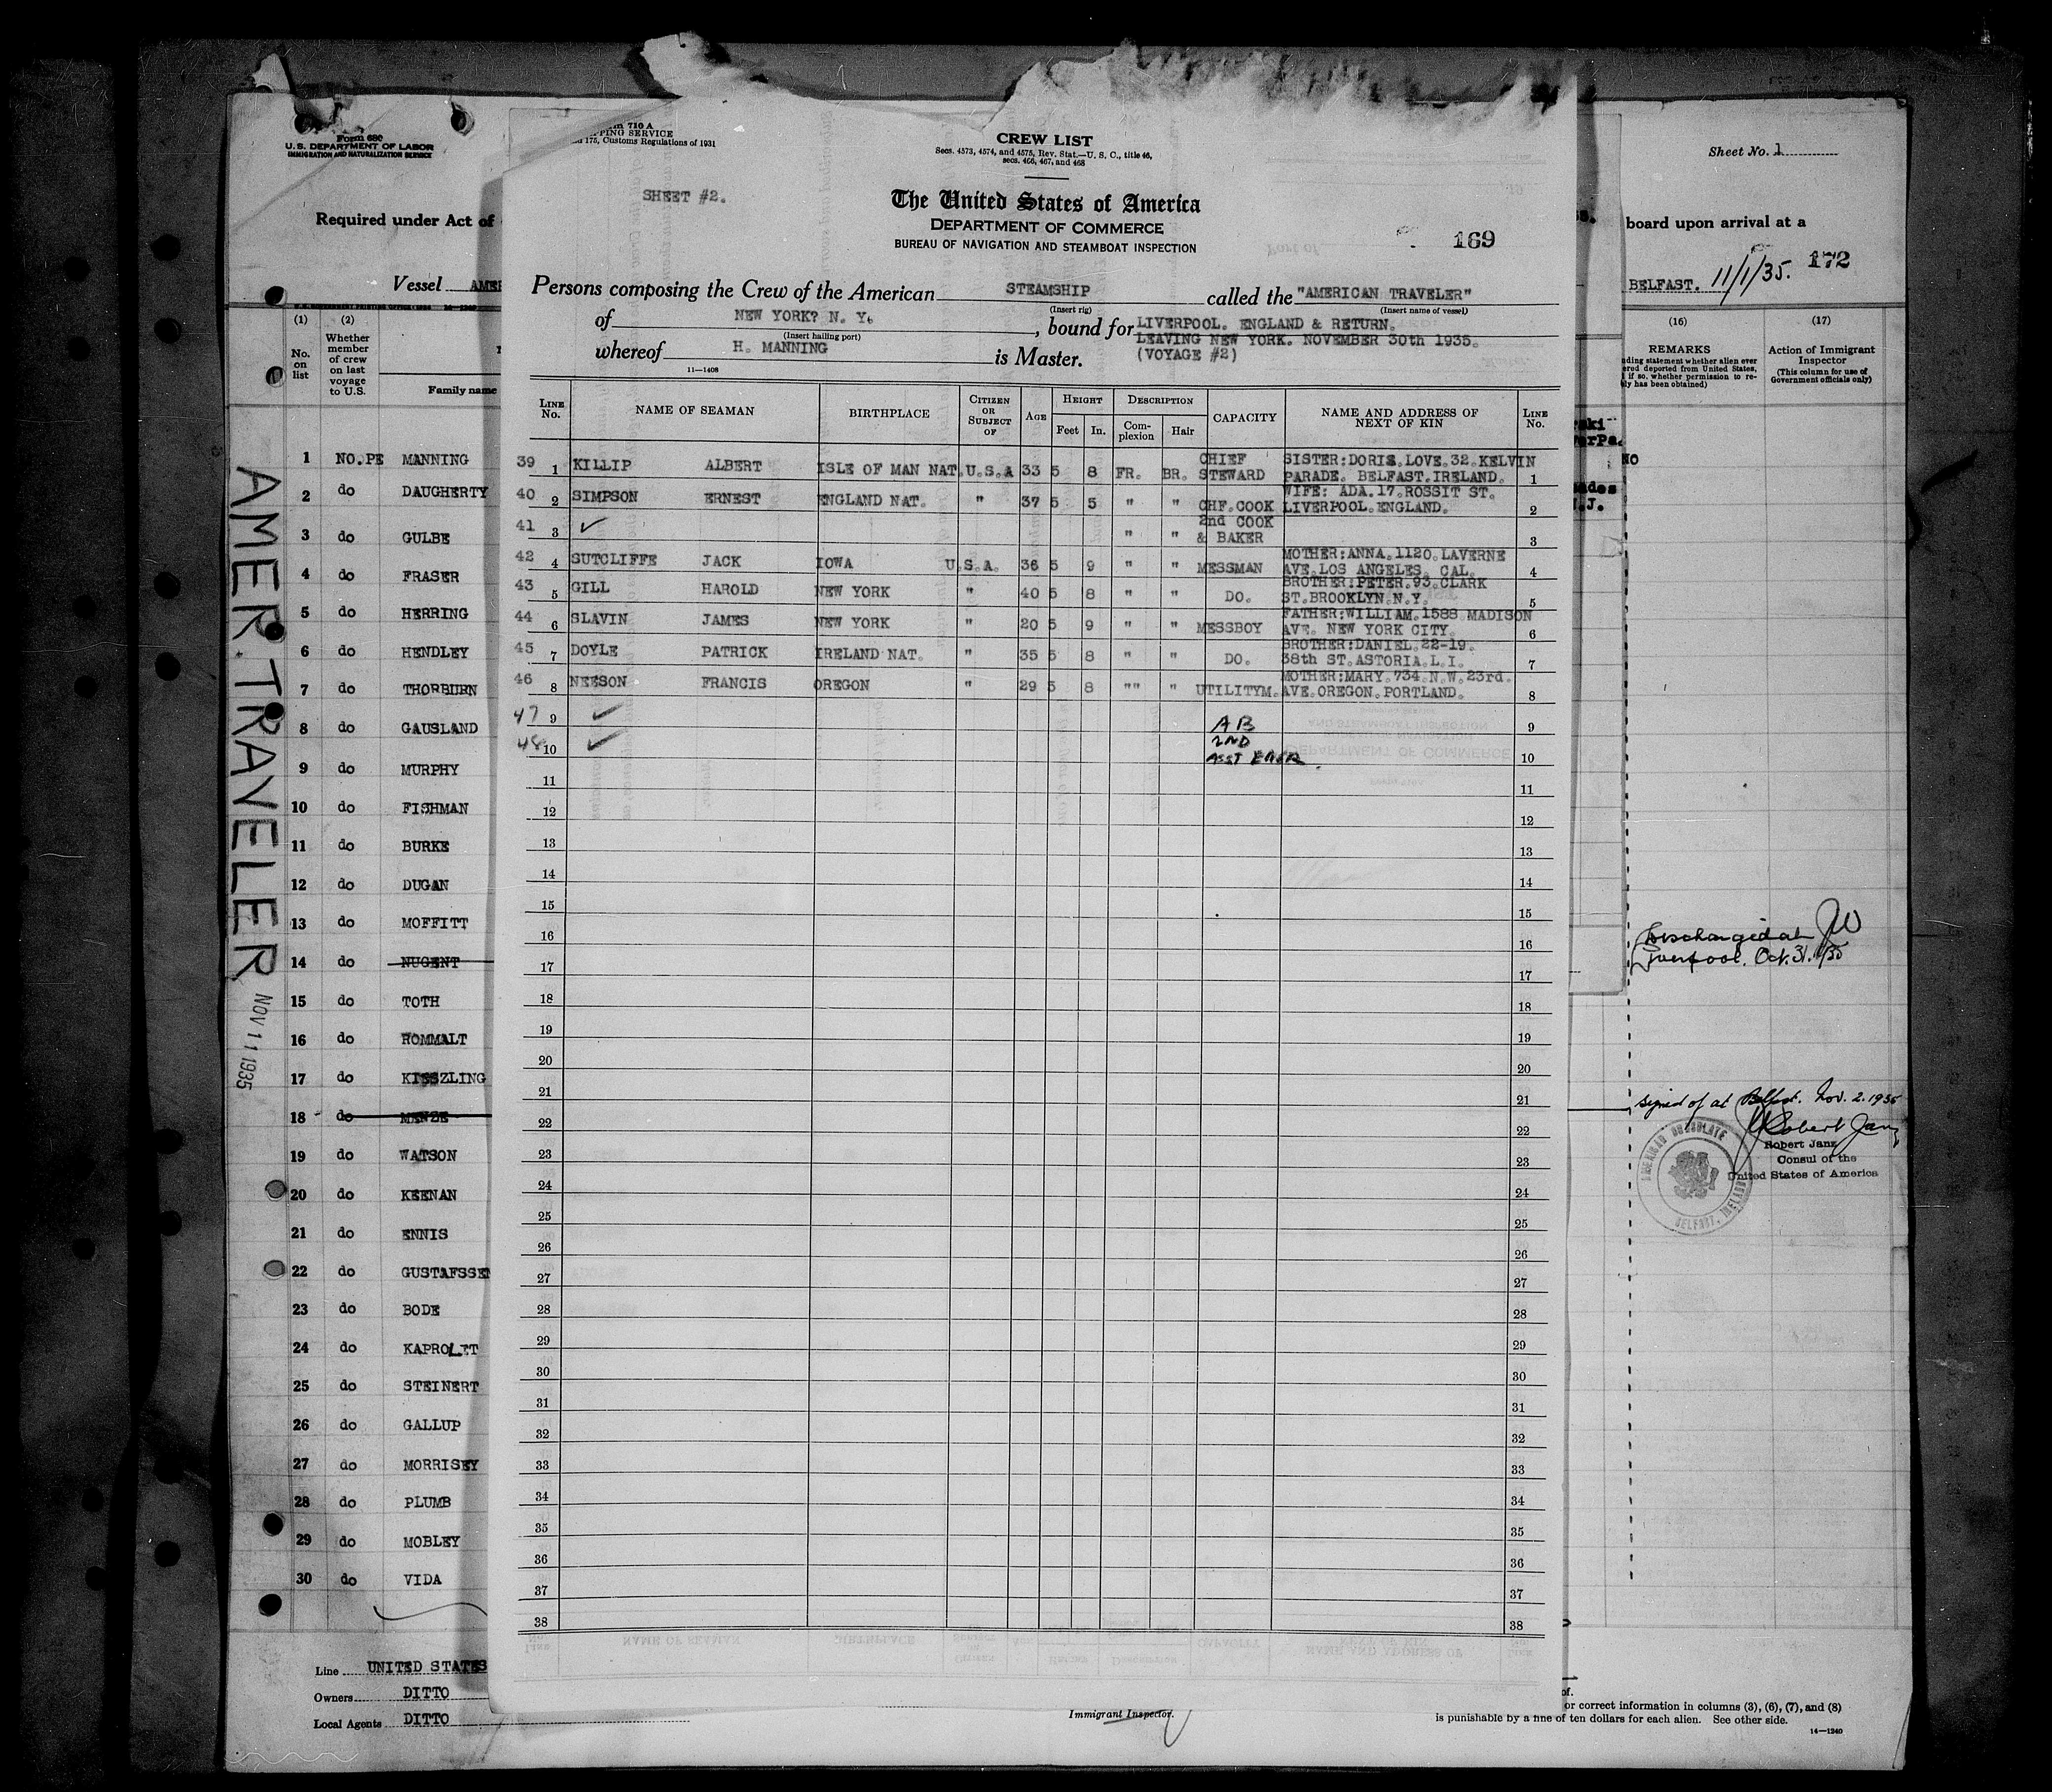 Form 680
U.S. DEPARTMENT OF LABOR
IMMIGRATION AND NATURALIZATION SERVICE
Required under Act of
Vessel AMER
(1) (2)
No. on list
Whether member of crew on last voyage to U.S.
Family name
1 NO.PE MANNING
2 do DAUGHERTY
3 do GULBE
4 do FRASER
5 do HERRING
6 do HENDLEY
7 do THORBURN
8 do GAUSLAND
9 do MURPHY
10 do FISHMAN
11 do BURKE
12 do DUGAN
13 do MOFFITT
14 do NUGENT
15 do TOTH
16 do ROMMALT
17 do KISSZLING
18 do MENZE
19 do WATSON
20 do KEENAN
21 do ENNIS
22 do GUSTAFSSEN
23 do BODE
24 do KAPROLET
25 do STEINERT
26 do GALLUP
27 do MORRISEY
28 do PLUMB
29 do MOBLEY
30 do VIDA
Line UNITED STATES
Owners DITTO
Local Agents DITTO
AMER. TRAVELER
NOV 11 1935
710 A
PPING SERVICE
175, Customs Regulations of 1931
SHEET #2.
CREW LIST
Secs. 4573, 4574, and 4575, Rev. Stat.—U. S. C., title 46,
secs. 466, 467, and 468
The United States of America
DEPARTMENT OF COMMERCE
BUREAU OF NAVIGATION AND STEAMBOAT INSPECTION
169
Persons composing the Crew of the American STEAMSHIP called the "AMERICAN TRAVELER"
(Insert rig) (Insert name of vessel)
of NEW YORK? N. Y. , bound for LIVERPOOL. ENGLAND & RETURN.
(Insert hailing port)
LEAVING NEW YORK. NOVEMBER 30th 1935.
whereof H. MANNING is Master. (VOYAGE #2)
11—1408
LINE No. NAME OF SEAMAN BIRTHPLACE CITIZEN OR SUBJECT OF AGE HEIGHT Feet In. DESCRIPTION Complexion Hair CAPACITY NAME AND ADDRESS OF NEXT OF KIN LINE No.
39 1 KILLIP ALBERT ISLE OF MAN NAT. U.S.A 33 5 8 FR. BR. CHIEF STEWARD SISTER:DORIS.LOVE.32.KELVIN PARADE. BELFAST.IRELAND. 1
40 2 SIMPSON ERNEST ENGLAND NAT. " 37 5 5 " " CHF.COOK WIFE: ADA.17.ROSSIT ST. LIVERPOOL.ENGLAND. 2
41 3 ✓ " " 2nd COOK & BAKER 3
42 4 SUTCLIFFE JACK IOWA U.S.A. 36 5 9 " " MESSMAN MOTHER:ANNA.1120.LAVERNE AVE.LOS ANGELES. CAL. 4
43 5 GILL HAROLD NEW YORK " 40 5 8 " " DO. BROTHER:PETER.93.CLARK ST.BROOKLYN.N.Y. 5
44 6 SLAVIN JAMES NEW YORK " 20 5 9 " " MESSBOY FATHER:WILLIAM.1588 MADISON AVE. NEW YORK CITY. 6
45 7 DOYLE PATRICK IRELAND NAT. " 35 5 8 " " DO. BROTHER:DANIEL.22-19. 38th ST.ASTORIA.L.I. 7
46 8 NEESON FRANCIS OREGON " 29 5 8 "" " UTILITYM. MOTHER:MARY.734.N.W.23rd. AVE.OREGON.PORTLAND. 8
47 9 ✓ AB 9
48 10 ✓ 2ND ASST ENGR. 10
11 11
12 12
13 13
14 14
15 15
16 16
17 17
18 18
19 19
20 20
21 21
22 22
23 23
24 24
25 25
26 26
27 27
28 28
29 29
30 30
31 31
32 32
33 33
34 34
35 35
36 36
37 37
38 38
Immigrant Inspector.
Sheet No. 1
board upon arrival at a
BELFAST. 11/1/35. 172
(16) (17)
REMARKS
Action of Immigrant Inspector
(This column for use of Government officials only)
Discharged at
Liverpool. Oct. 31.
signed of at Belfast. Nov. 2. 1935
Robert Janz
Robert Janz
Consul of the
United States of America
AMERICAN CONSULATE
BELFAST, IRELAND
or correct information in columns (3), (6), (7), and (8)
is punishable by a fine of ten dollars for each alien. See other side.
14—1240